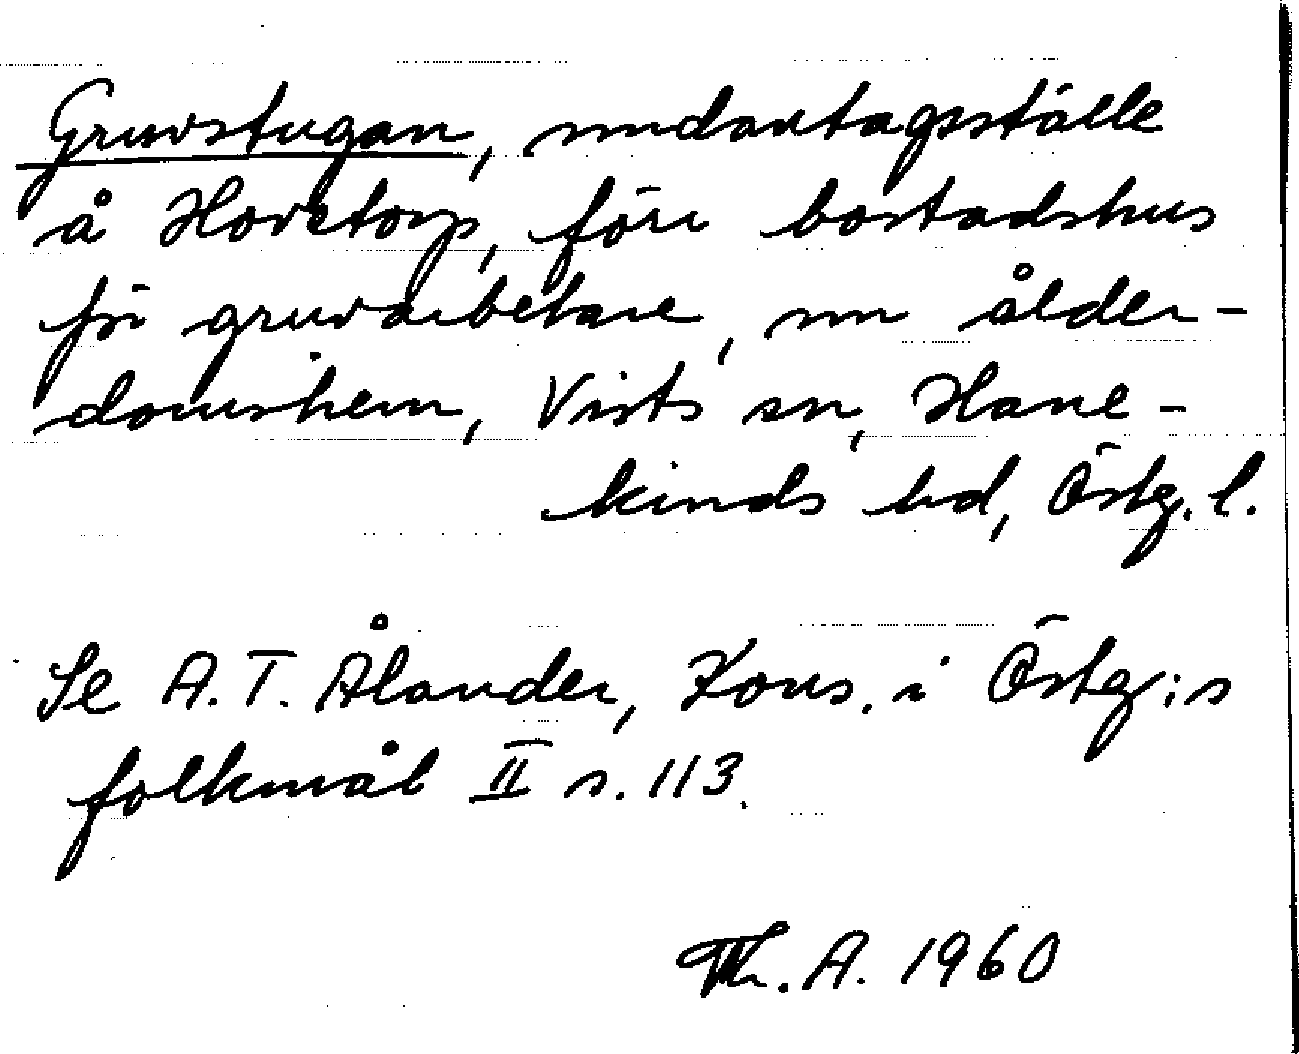 Gruvstugan, undantagsställe
å Hovetorp, förr bostadshus
för gruvarbetare, nu ålder-
domshem, Vists sn, Hane-
kinds hd, Östg. l.
Se A. T. Ålander, Kons. i Östg:s
folkmål II s. 113.
Th. A. 1960